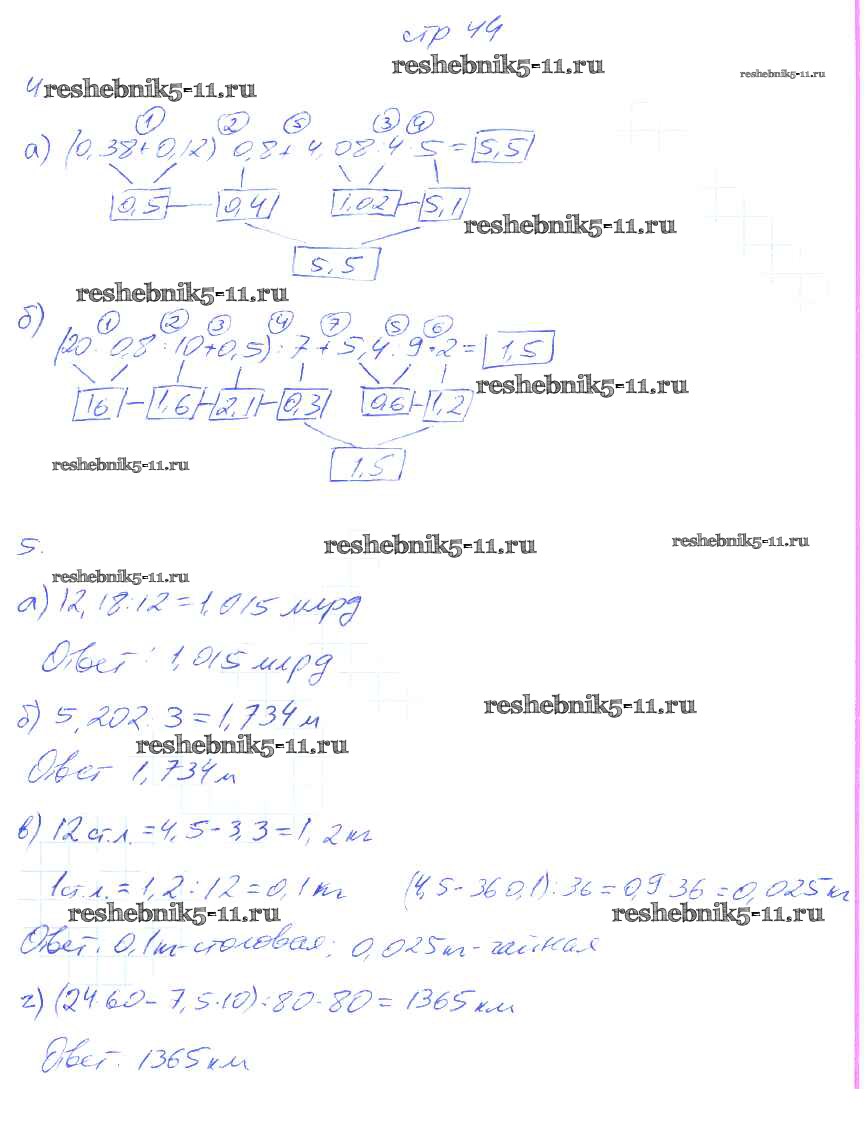 стр 44
reshebnik5-11.ru
reshebnik5-11.ru
4 reshebnik5-11.ru
1 2 5 3 4
а) (0,38+0,12) 0,8+4,08:4·5=5,5
0,5 0,4 1,02 5,1
reshebnik5-11.ru
5,5
reshebnik5-11.ru
б) 1 2 3 4 7 5 6
(20·0,8:10+0,5):7+5,4:9·2=1,5
reshebnik5-11.ru
16 1,6 2,1 0,3 0,6 1,2
reshebnik5-11.ru
1,5
5.
reshebnik5-11.ru
reshebnik5-11.ru
reshebnik5-11.ru
а) 12,18:12=1,015 млрд
Ответ: 1,015 млрд
reshebnik5-11.ru
б) 5,202:3=1,734 м
reshebnik5-11.ru
Ответ 1,734 м
в) 12 ст.л.=4,5-3,3=1,2 кг
1 ст.л.=1,2:12=0,1 кг (4,5-36 0,1):36=0,9 36=0,025 кг
reshebnik5-11.ru
reshebnik5-11.ru
Ответ. 0,1 кг-столовая; 0,025 кг-чайная
г) (24·60-7,5·10):80·80=1365 км
Ответ. 1365 км